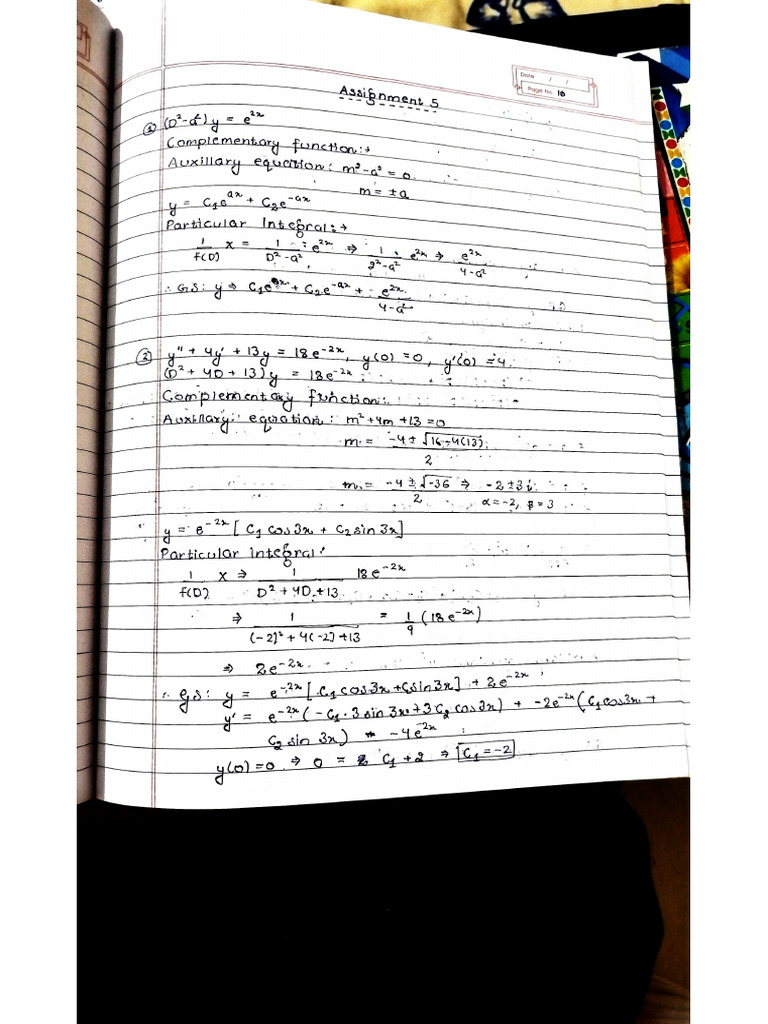 Date / /
Page No. 16
Assignment 5
① (D²-a²) y = e²ˣ
Complementary function:→
Auxillary equation: m²-a² = 0
m = ±a
y = C₁eᵃˣ + C₂e⁻ᵃˣ
Particular Integral:→
1/f(D) X = 1/(D²-a²) e²ˣ ⇒ 1/(2²-a²) e²ˣ ⇒ e²ˣ/(4-a²)
∴ GS: y ⇒ C₁eᵃˣ + C₂e⁻ᵃˣ + e²ˣ/(4-a²)
② y'' + 4y' + 13y = 18e⁻²ˣ, y(0) = 0, y'(0) = 4
(D² + 4D + 13) y = 18e⁻²ˣ
Complementary function:
Auxillary equation: m²+4m+13=0
m = (-4 ± √(16-4(13)))/2
m = (-4 ± √-36)/2 ⇒ -2 ± 3i
α=-2, β=3
y = e⁻²ˣ [C₁ cos3x + C₂ sin 3x]
Particular Integral:
1/f(D) X ⇒ 1/(D² + 4D + 13) 18e⁻²ˣ
⇒ 1/((-2)² + 4(-2) + 13) = 1/9 (18e⁻²ˣ)
⇒ 2e⁻²ˣ
∴ GS: y = e⁻²ˣ [C₁ cos3x + C sin3x] + 2e⁻²ˣ
y' = e⁻²ˣ (-C₁·3 sin 3x + 3C₂ cos3x) + -2e⁻²ˣ (C₁ cos3x +
C₂ sin 3x) - 4e⁻²ˣ
y(0) = 0 ⇒ 0 = C₁ + 2 ⇒ C₁ = -2